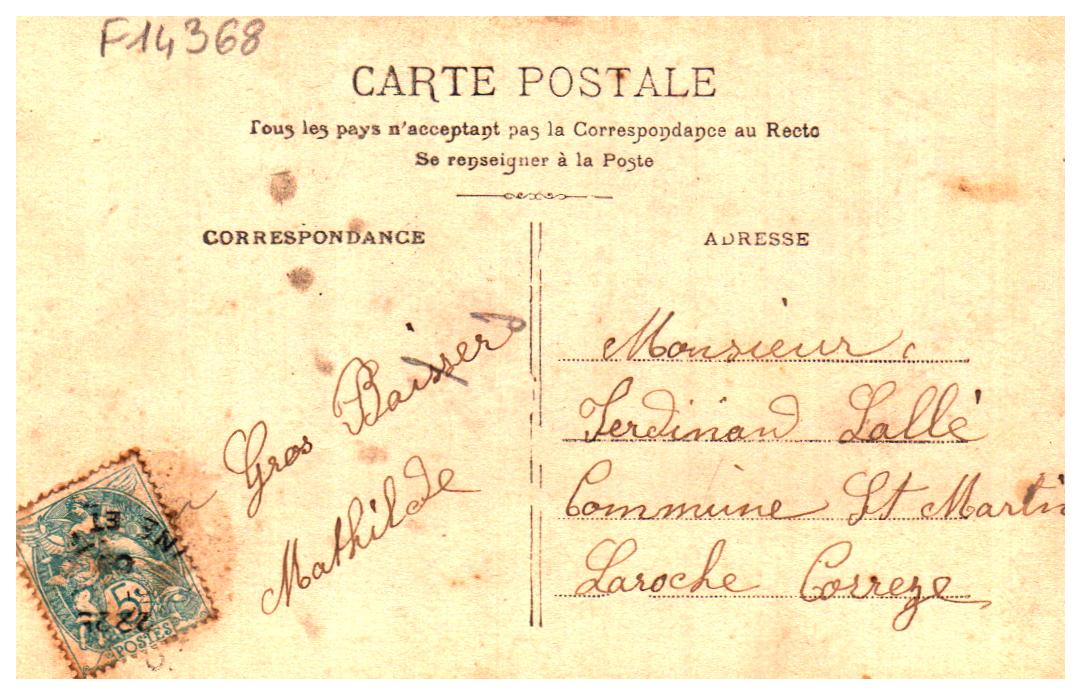 F14368
CARTE POSTALE
Tous les pays n'acceptent pas la Correspondance au Recto
Se renseigner à la Poste
CORRESPONDANCE
Gros Baisser
Mathilde
5c
POSTES
ADRESSE
Monsieur
Ferdinand Lallé
Commune St Martin
Laroche Correze